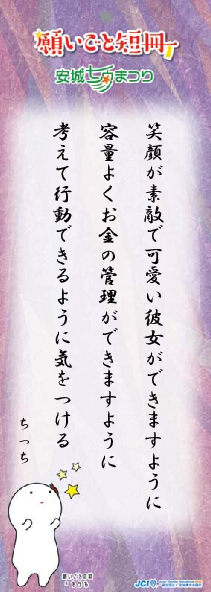 願いごと短冊
安城七夕まつり
笑顔が素敵で可愛い彼女ができますように
容量よくお金の管理ができますように
考えて行動できるように気をつける
ちっち
願いごと短冊
JCI